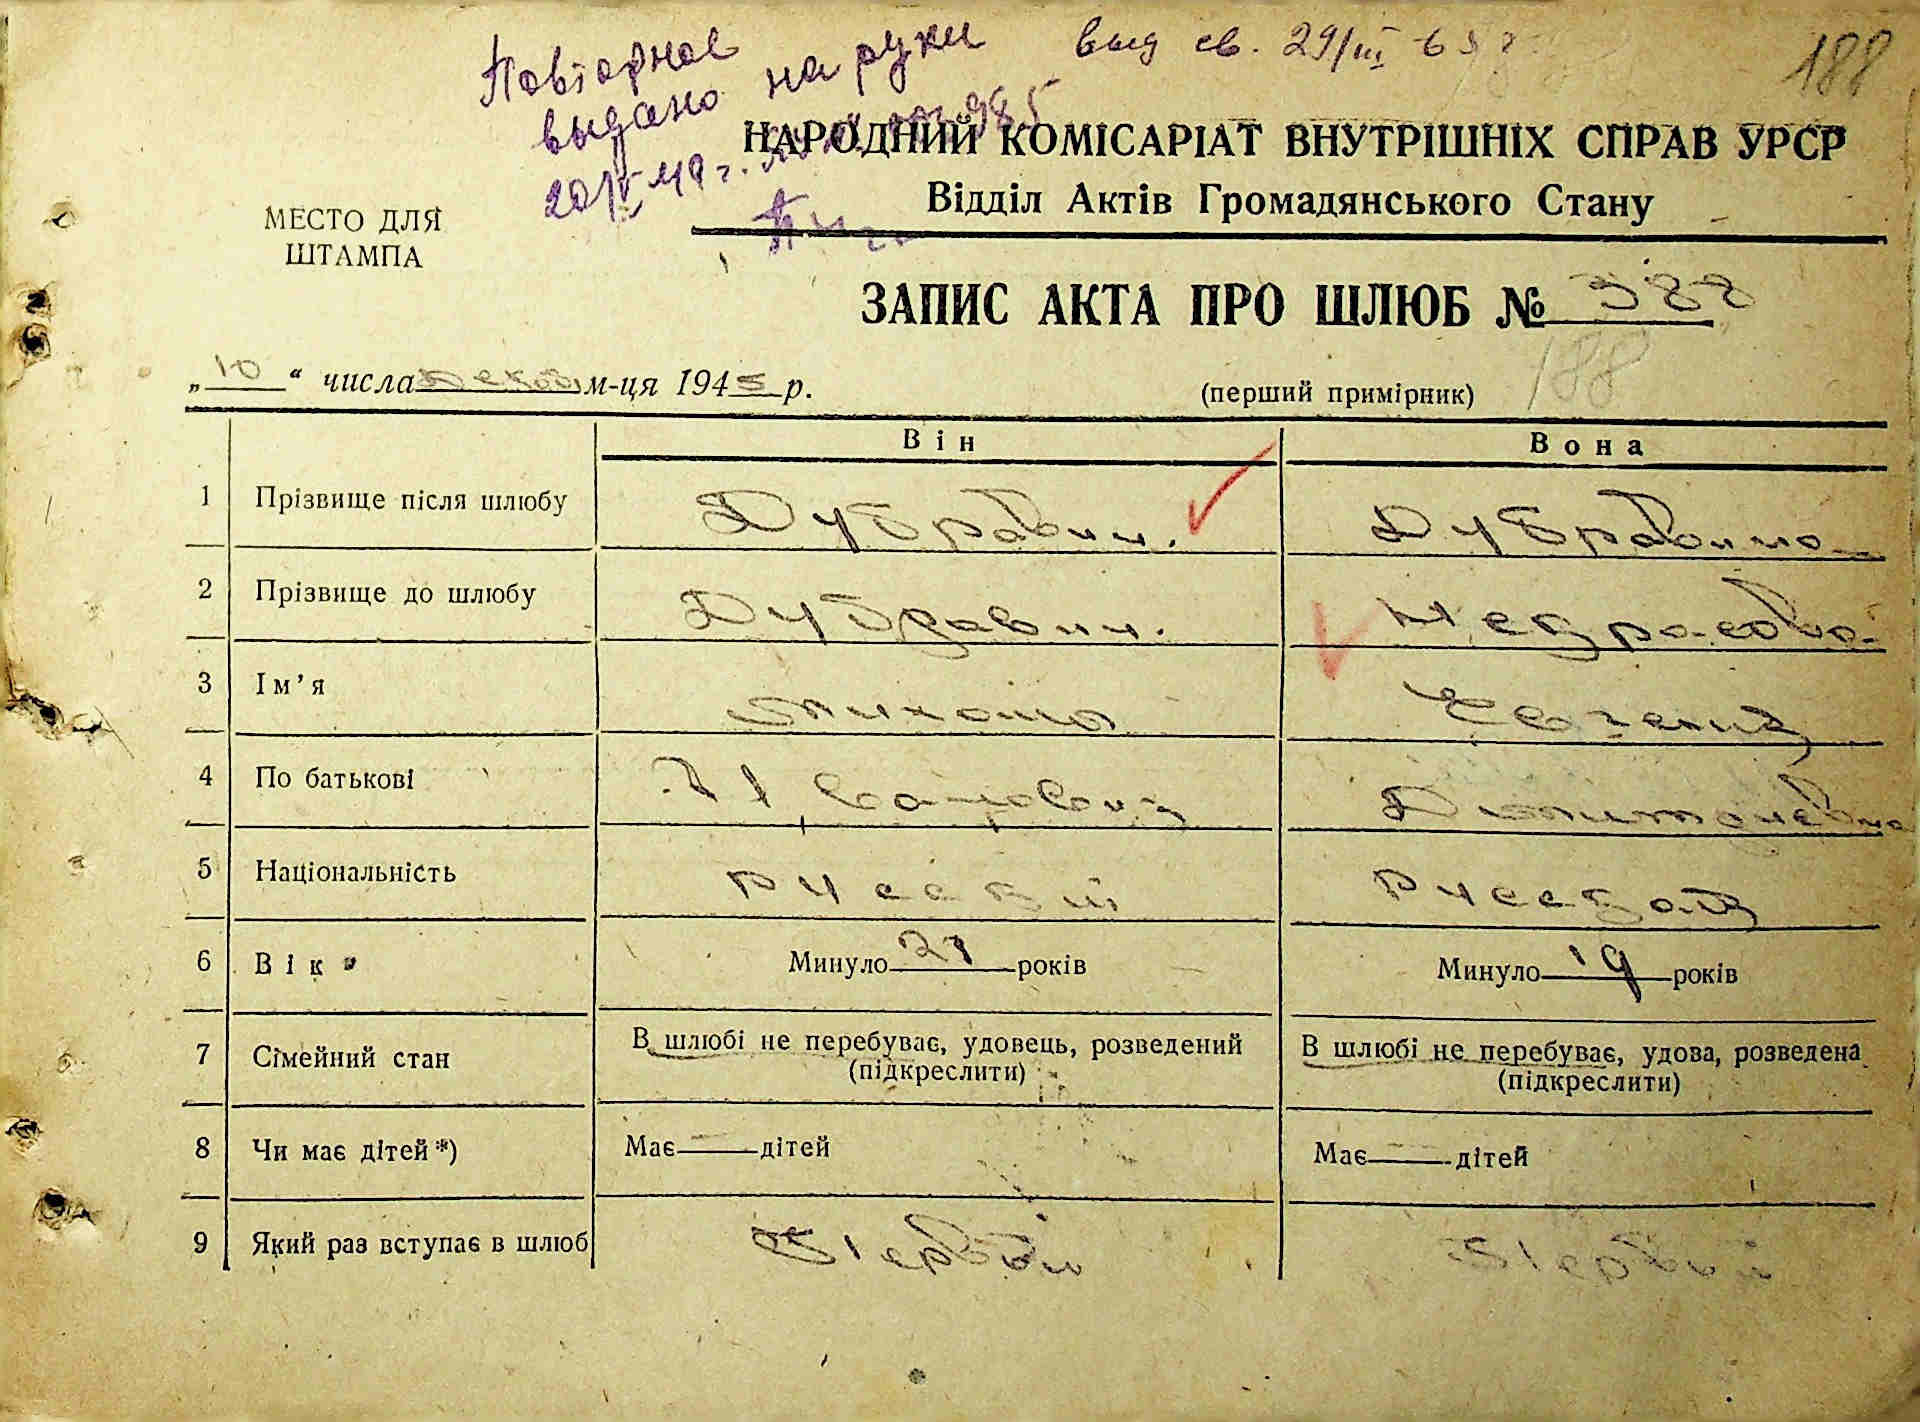 Повторное
выдано на руки
выд св. 29/III
188
НАРОДНИЙ КОМІСАРІАТ ВНУТРІШНІХ СПРАВ УРСР
Відділ Актів Громадянського Стану
МЕСТО ДЛЯ
ШТАМПА
ЗАПИС АКТА ПРО ШЛЮБ № 388
„10“ числа м-ця 1945 р.
(перший примірник) 188
Він Вона
1 Прізвище після шлюбу Дубравин. Дубравина
2 Прізвище до шлюбу Дубравин. Некрасова
3 Ім’я Михаил Евгения
4 По батькові Иванович Дмитриевна
5 Національність русский русская
6 Вік Минуло 21 років Минуло 19 років
7 Сімейний стан В шлюбі не перебуває, удовець, розведений (підкреслити) В шлюбі не перебуває, удова, розведена (підкреслити)
8 Чи має дітей*) Має — дітей Має — дітей
9 Який раз вступає в шлюб Первый Первый